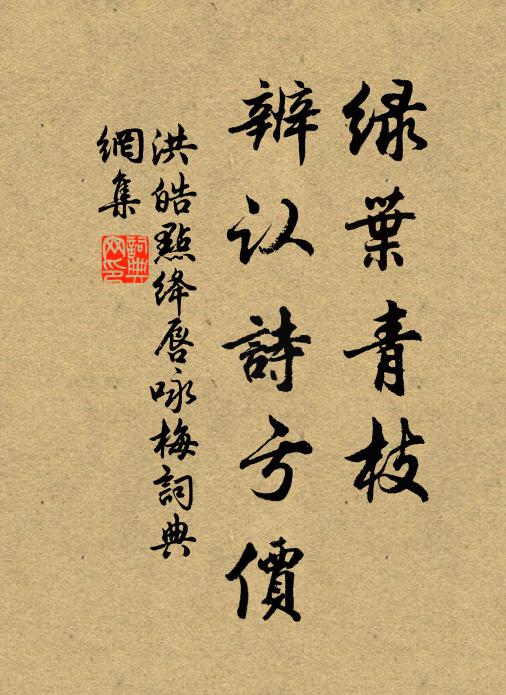 绿葉青枝
辨认詩亏價
洪皓點绛唇咏梅詞典
網集
詞典
网印